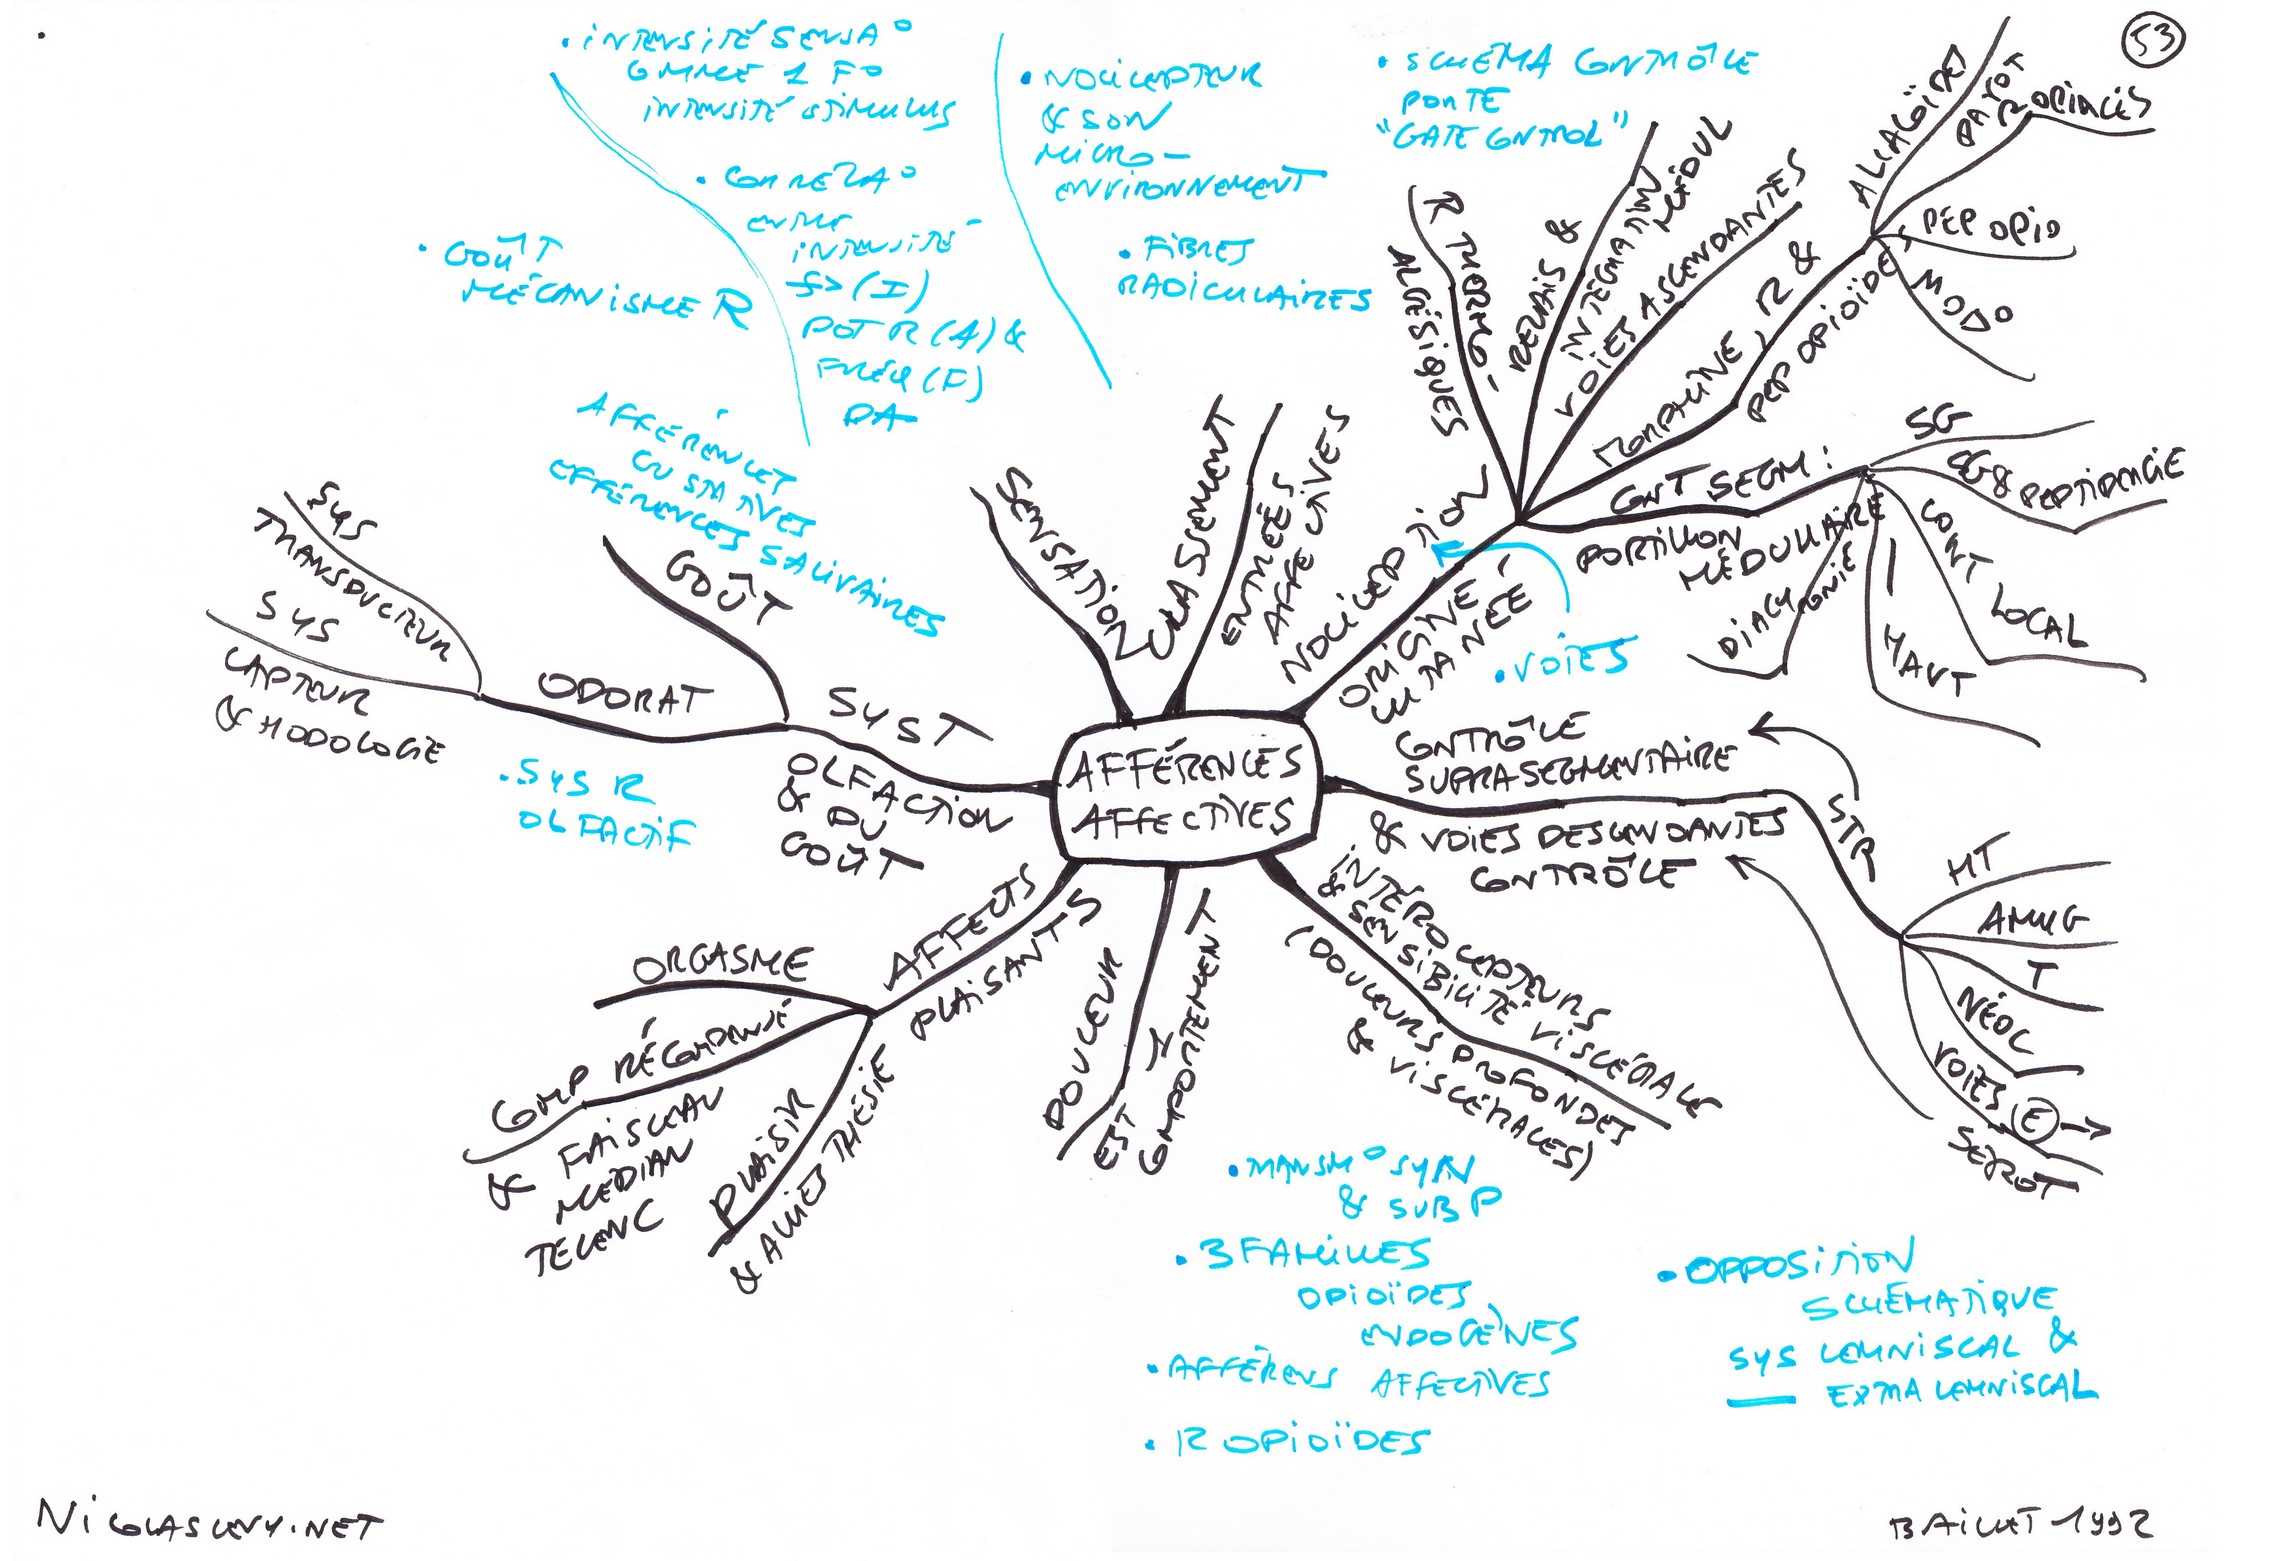 53
• INTENSITÉ SENSA°
COMME 1 F°
INTENSITÉ STIMULUS
• CORRELA°
ENTRE
INTENSITÉ
(I)
POT R (A) &
FRÉQ (F)
PA
• GOÛT
MÉCANISME R
• NOCICEPTEUR
& SON
MICRO-
ENVIRONNEMENT
• FIBRES
RADICULAIRES
• SCHÉMA CONTRÔLE
PORTE
"GATE CONTROL"
AFFÉRENCES
GUSTATIVES
EFFÉRENCES SALIVAIRES
SYS
TRANSDUCTEUR
SYS
CAPTEUR
& HODOLOGIE
ODORAT
GOÛT
SYST
OLFACTION
& DU
GOÛT
• SYS R
OLFACTIF
SENSATION
CLASSEMENT
ENTRÉES
AFFECTIVES
NOCICEPTION
ORIGINE
CUTANÉE
• VOIES
R THERMO-
ALGÉSIQUES
RELAIS &
INTÉGRATION
MÉDUL
VOIES ASCENDANTES
MORPHINE, R &
PEP OPIOÏDES
ALCALOÏDES
PAVOT
R OPIACÉS
PEP OPIO
MOD°
CONT SEGM:
PORTILLON
MÉDULLAIRE
SG
SG & PEPTIDERGIE
CONT LOCAL
— HAUT
DIACYRGNIE
AFFÉRENCES
AFFECTIVES
CONTRÔLE
SUPRASEGMENTAIRE
& VOIES DESCENDANTES
CONTRÔLE
STR
HT
AMYG
T
NÉOC
VOIES E →
SEROT
INTÉROCEPTEURS
& SENSIBILITÉ VISCÉRALE
(DOULEURS PROFONDES
& VISCÉRALES)
DOULEUR
EST 1
COMPORTEMENT
AFFECTS
PLAISANTS
ORGASME
COMP RÉCOMPENSE
& FAISCEAU
MEDIAN
TELENC
PLAISIR
& ALLIESTHÉSIE
• TRANSM° SYN
& SUB P
• 3 FAMILLES
OPIOÏDES
ENDOGÈNES
• AFFÉRENS AFFECTIVES
• R OPIOÏDES
• OPPOSITION
SCHÉMATIQUE
SYS LEMNISCAL &
— EXTRA LEMNISCAL
NICOLASLEVY.NET
BAILLET 1992